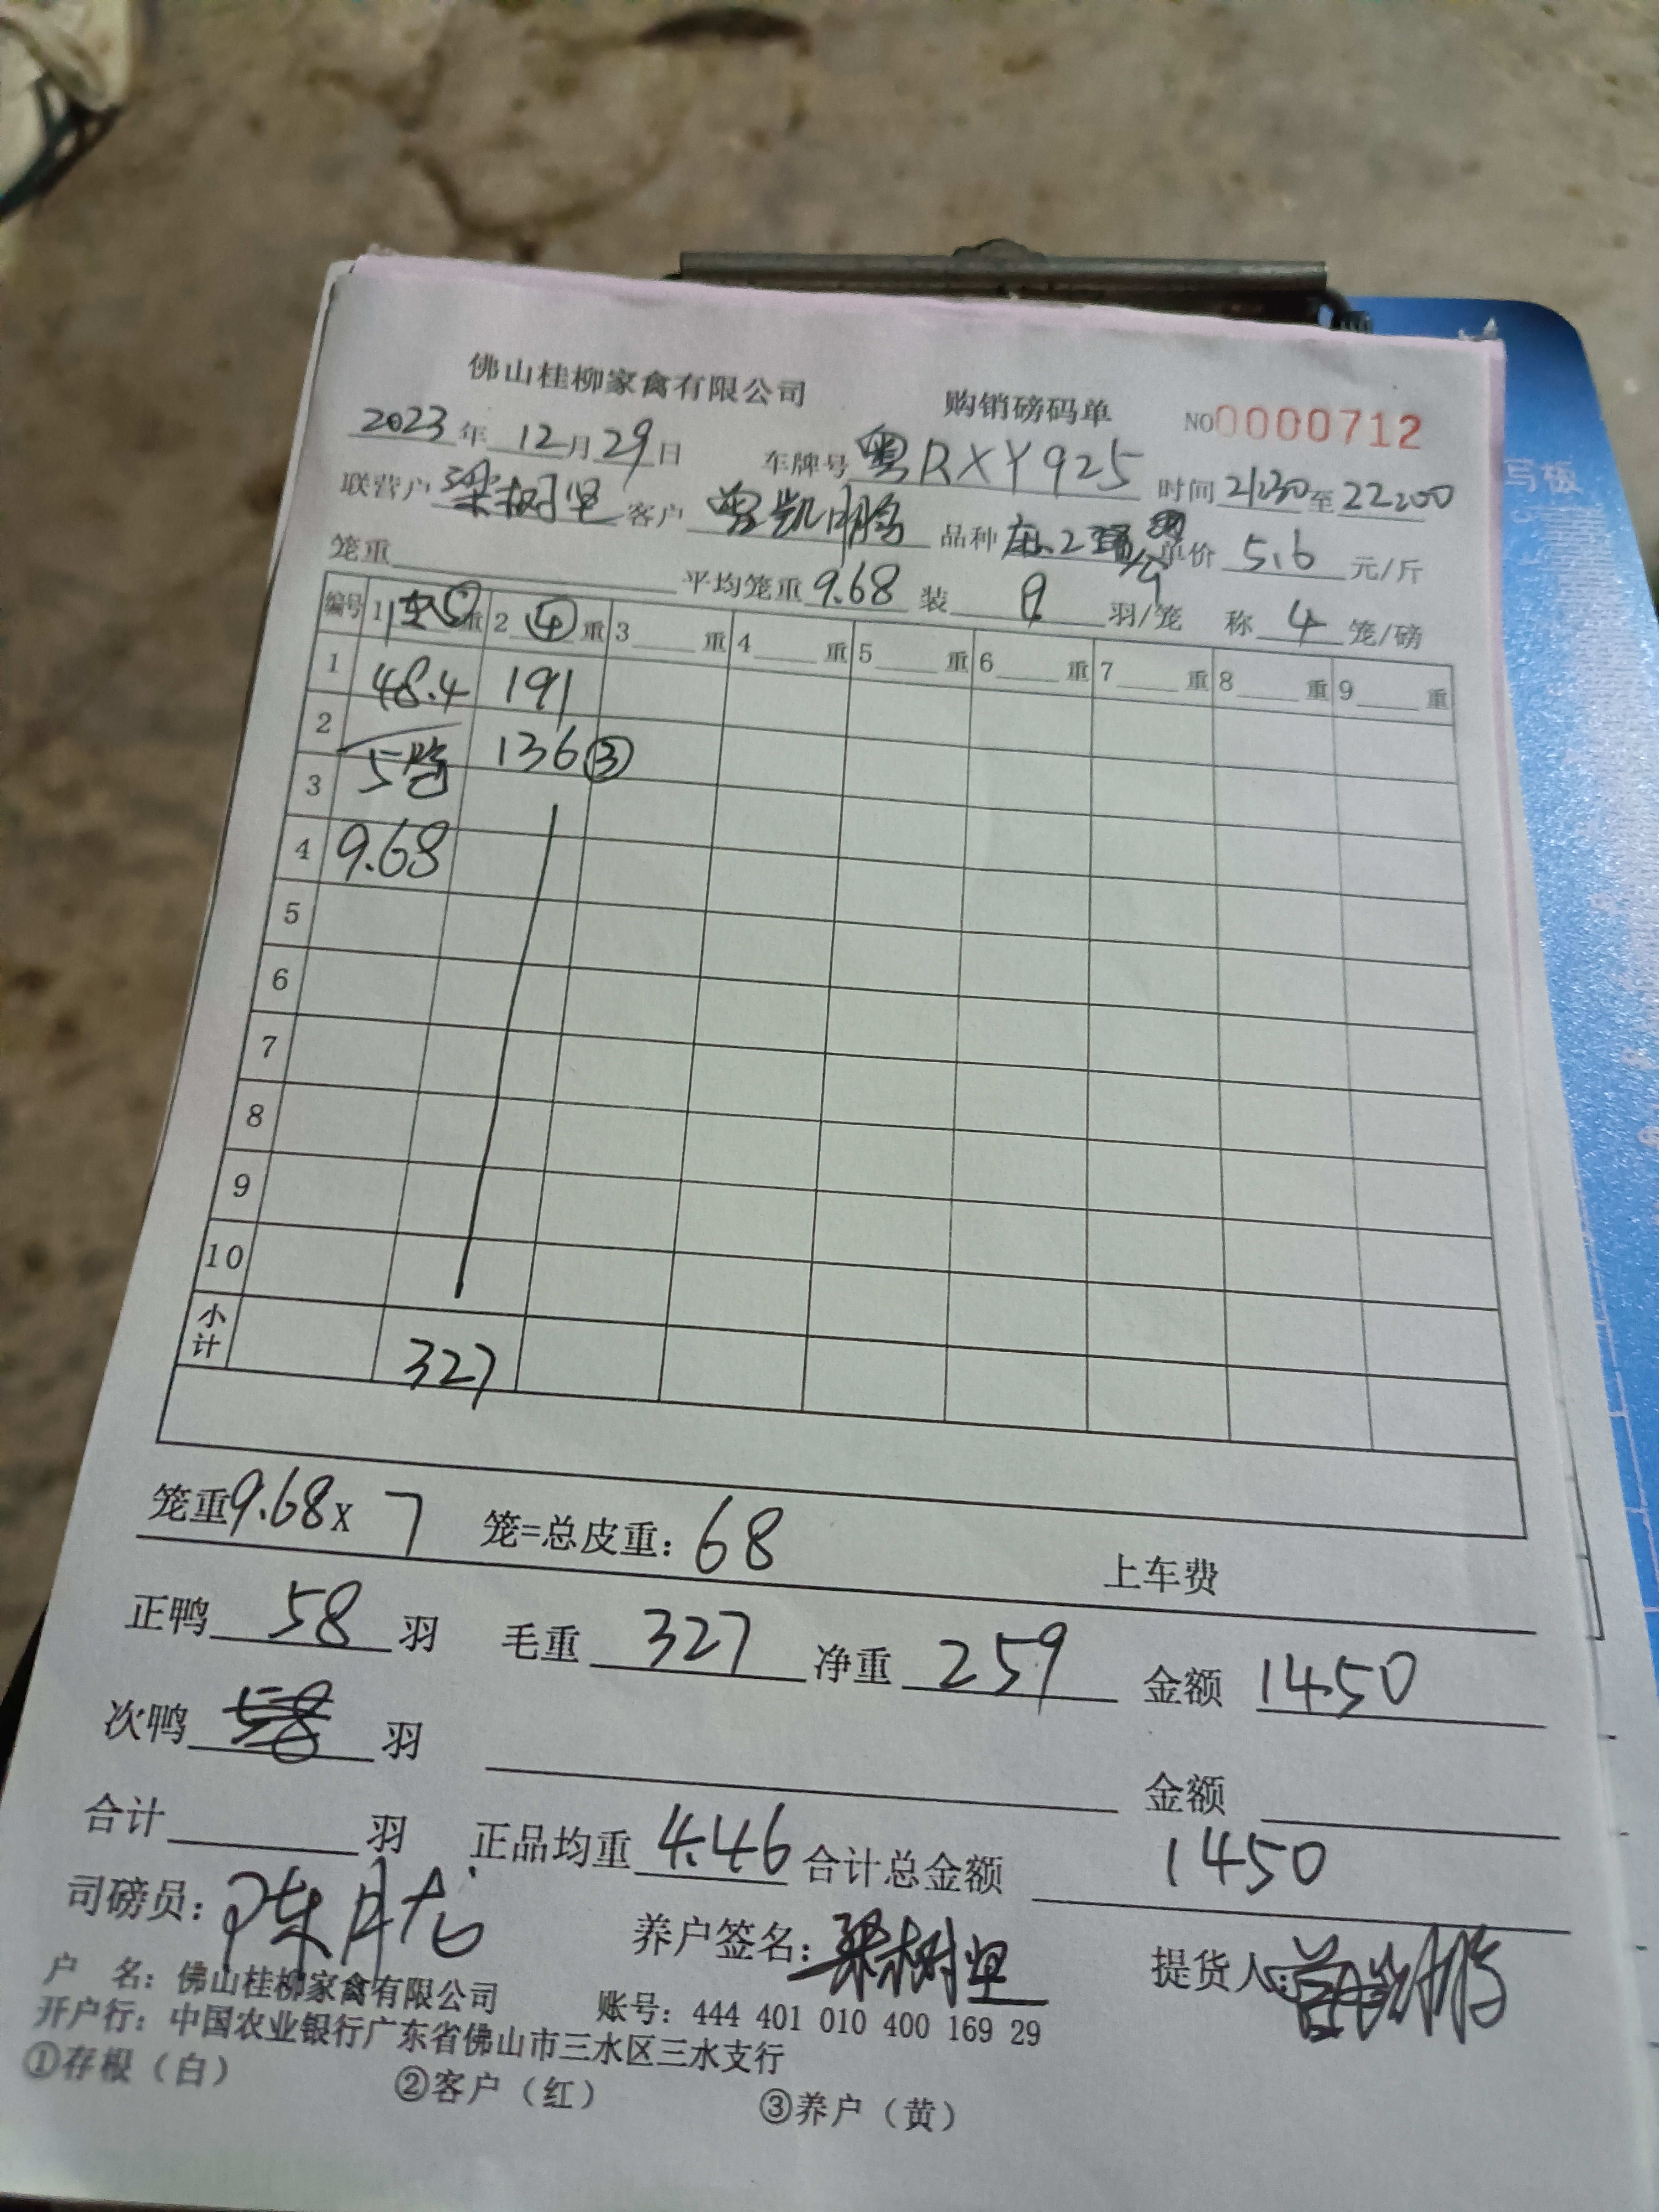 佛山桂柳家禽有限公司 购销磅码单 NO0000712
2023年12月29日 车牌号粤RXY925 时间21:30至22:00
联营户梁树坚 客户曾凯鹏 品种 单价5.6元/斤
笼重 平均笼重9.68 装 羽/笼 称4笼/磅
编号 1 重 2④重 3 重 4 重 5 重 6 重 7 重 8 重 9 重
1 48.4 191
2 136③
3 5笼
4 9.68
5
6
7
8
9
10
小计 327
笼重9.68X7 笼=总皮重:68 上车费
正鸭58羽 毛重327净重259 金额1450
次鸭 羽 金额
合计 羽 正品均重4.46合计总金额1450
司磅员: 养户签名:梁树坚 提货人:曾凯鹏
户 名:佛山桂柳家禽有限公司 账号:444 401 010 400 169 29
开户行:中国农业银行广东省佛山市三水区三水支行
①存根(白) ②客户(红) ③养户(黄)
写板